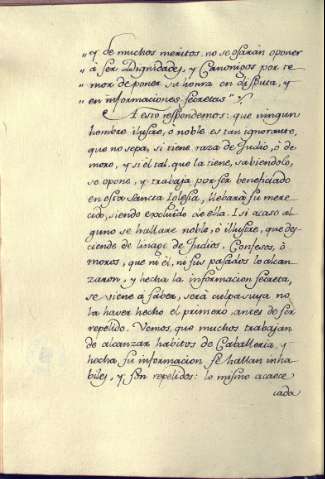 „ y de muchos meritos, no se osarán oponer
„ á ser Dignidades, y Canonigos por te
„ mor de poner su honra en disputa, y
„ en informaciones secretas"
A esto respondemos: que ningun
hombre ilustre, ó noble es tan ignorante,
que no sepa, si tiene raza de Judio, ó de
moro, y si el tal, que la tiene, sabiendolo,
se opone, y trabaja por ser beneficiado
en esta Sancta Iglesia, llebará su mere
cido, siendo excluido de ella. I si acaso al
guno se hallare noble, ó illustre, que des
ciende de linage de Judios, Confesos, ó
moros, que ni él, ni sus pasados lo alcan
zaron, y hecha la informacion secreta,
se viene á saber, será culpa suya no
la haver hecho el primero, antes de ser
repelido. Vemos, que muchos trabajan
de alcanzar habitos de Caballeria, y
hecha su informacion se hallan inha
biles, y son repelidos: lo mismo acaece
cada